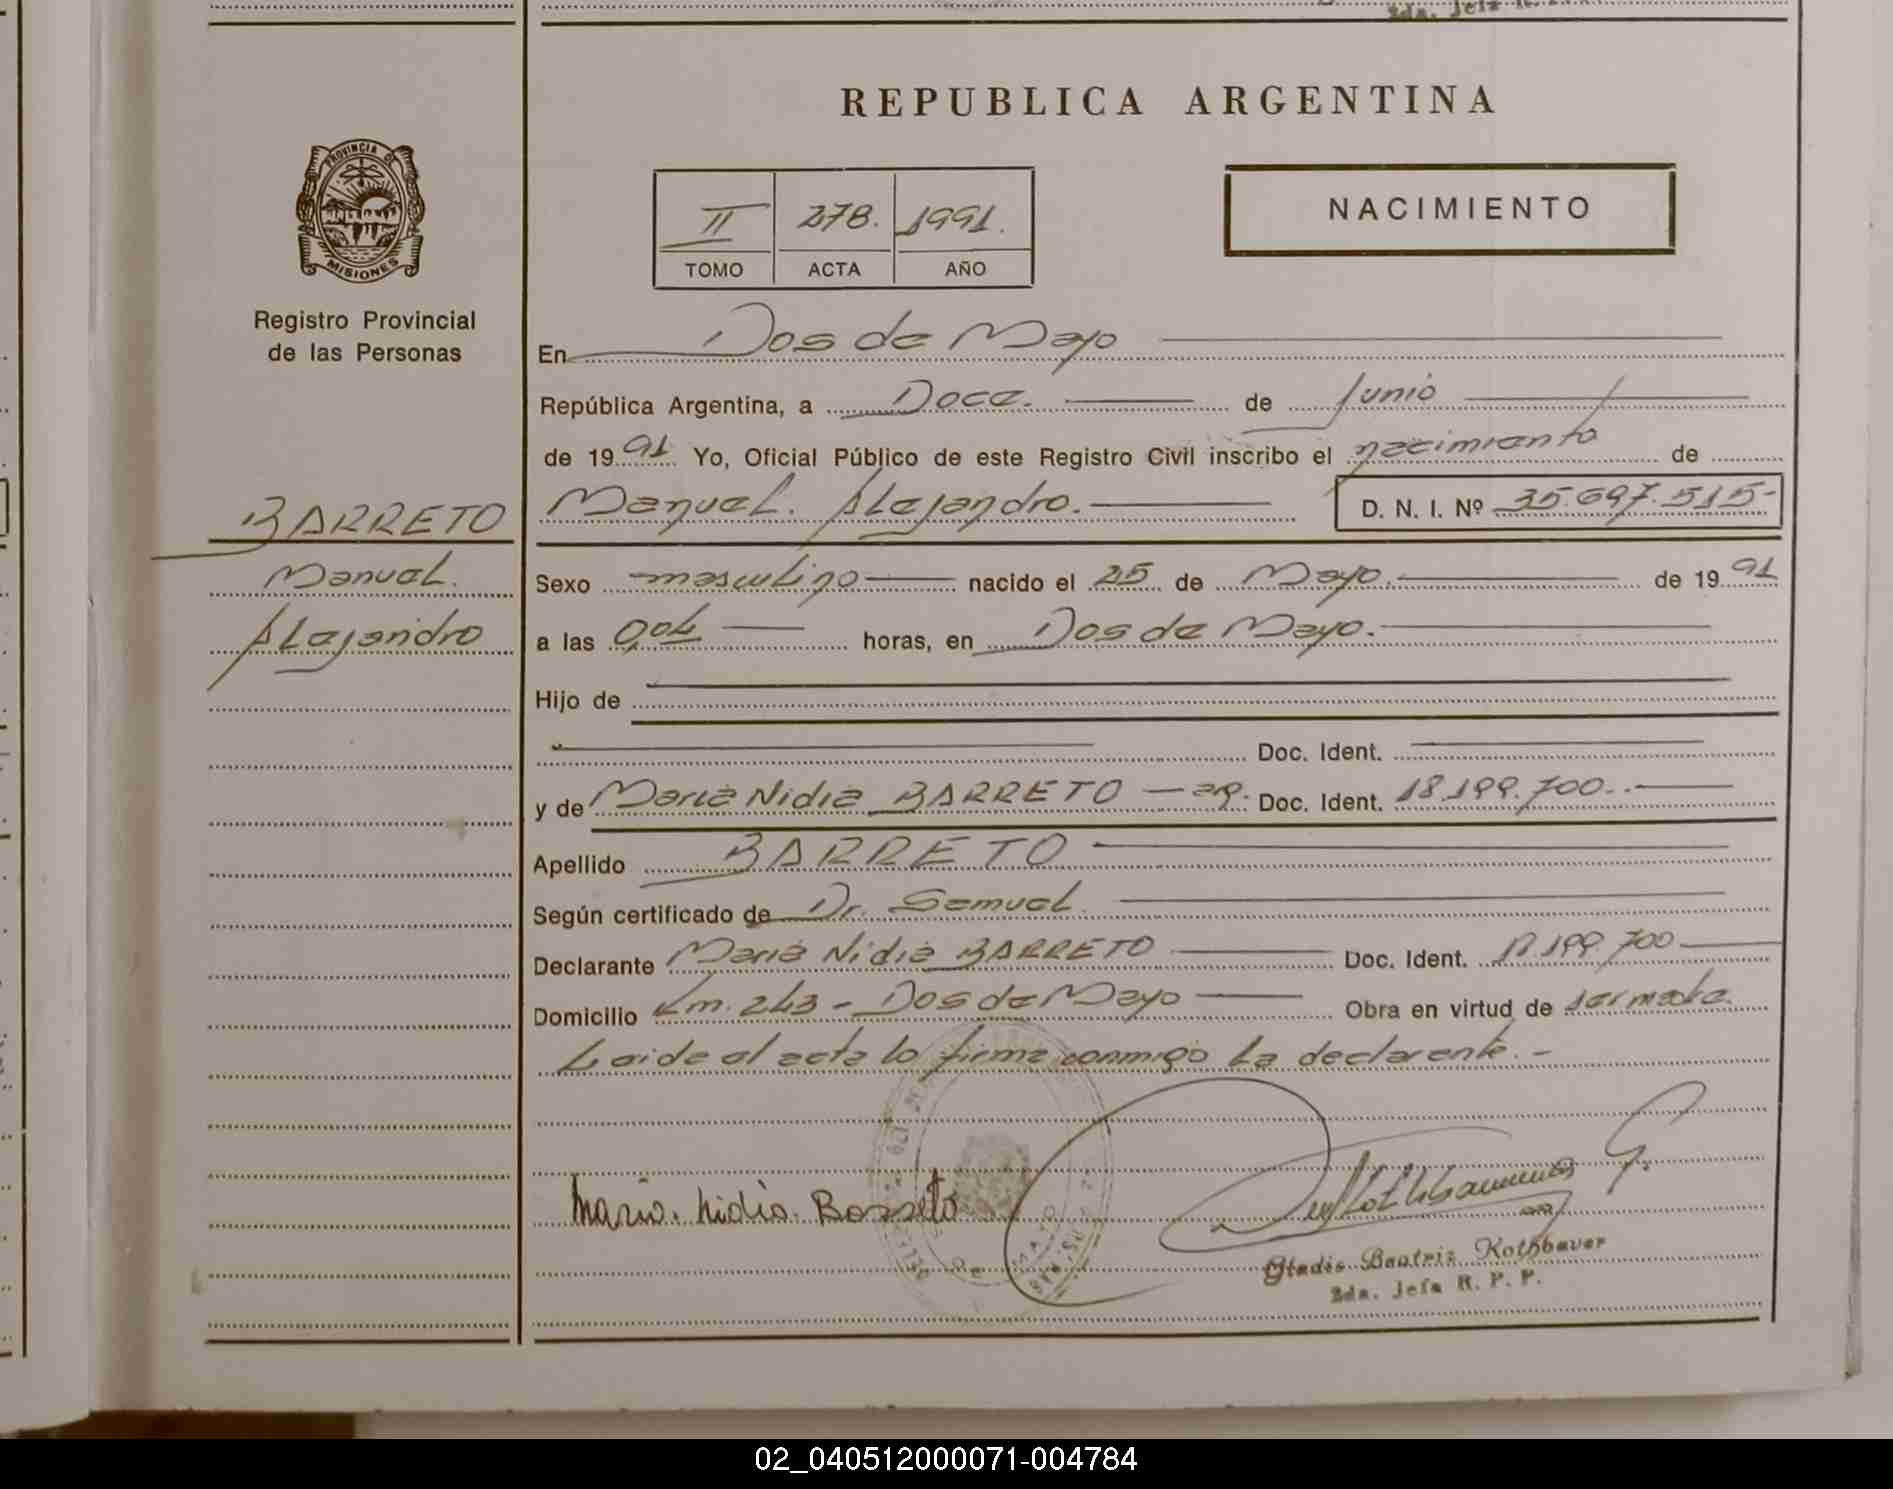 2da. Jefa R.
REPUBLICA ARGENTINA
PROVINCIA DE
MISIONES
II 278. 1991.
TOMO ACTA AÑO
NACIMIENTO
Registro Provincial
de las Personas
En Dos de Mayo
República Argentina, a Doce. de Junio
de 1991 Yo, Oficial Público de este Registro Civil inscribo el nacimiento de
BARRETO
Manuel. Alejandro. D. N. I. Nº 35.697.515-
Manuel.
Alejandro
Sexo masculino nacido el 25 de Mayo. de 1991
a las 9,04 horas, en Dos de Mayo.
Hijo de
Doc. Ident.
y de Maria Nidia BARRETO - ar. Doc. Ident. 18.199.700.-
Apellido BARRETO
Según certificado de Dr. Samuel.
Declarante Maria Nidia BARRETO Doc. Ident. 18.199.700
Domicilio Km. 243 - Dos de Mayo Obra en virtud de ser madre.
Leide el acta lo firma conmigo la declarante. -
Maria. Nidia. Barreto
Gladis Beatriz Rothbauer
2da. Jefa R. P. P.
02_040512000071-004784